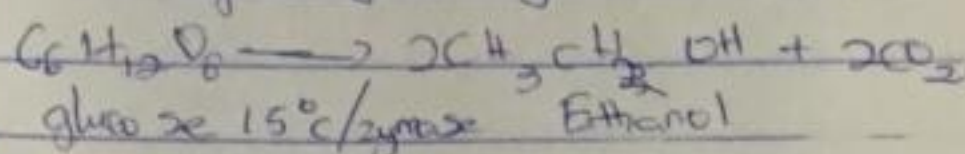 C6H12O6 ⟶ 2CH3CH2OH + 2CO2
glucose 15°c/zymase Ethanol